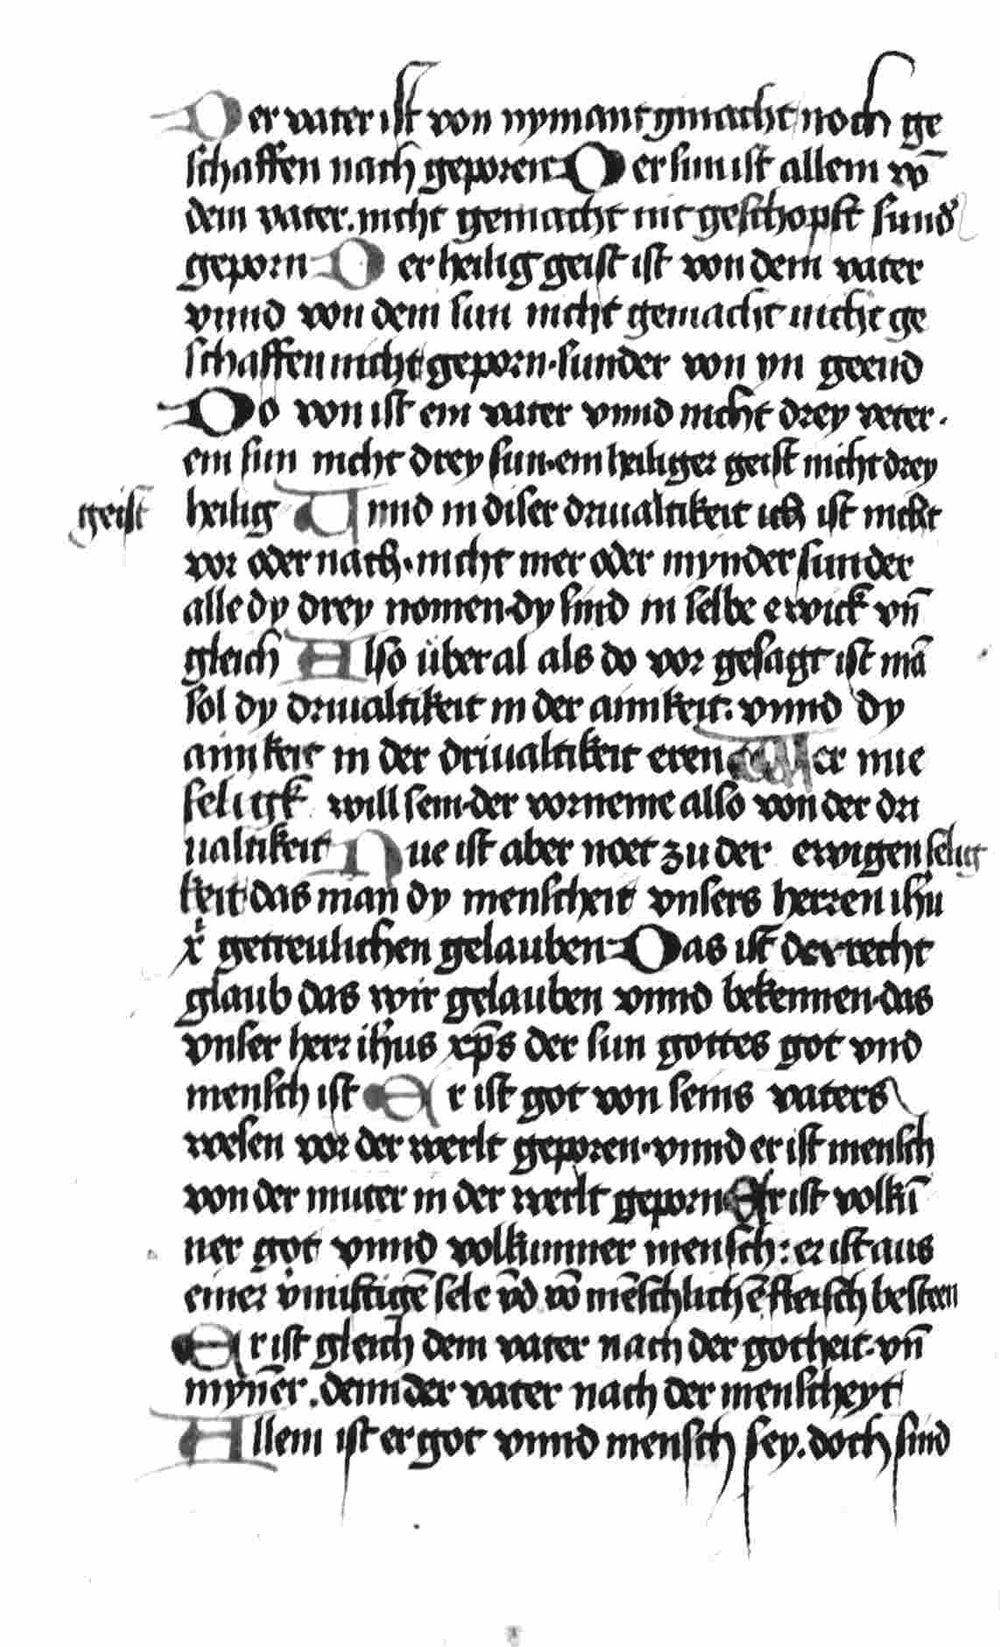 Der vater ist von nymant gmacht noch ge
schaffen nach geporen Der sun ist allein vō
dem vater. nicht gemacht nit geschopft sund̄
geporn Der heilig geist ist von dem vater
vnnd von dem sun nicht gemacht nicht ge
schaffen nicht geporn. sunder von yn geend
Do von ist ein vater vnnd nicht drey veter.
ein sun nicht drey sun. ein heiliger geist nicht drey
geist heilig Unnd in diser driualtikeit ich ist nicht
vor oder nach. nicht mer oder mynder sunder
alle dy drey nomen. dy sind in selbe ewick vn̄
gleich Also überal als do vor gesagt ist mā
sol dy driualtikeit in der ainikeit: vnnd dy
ainikeit in der driualtikeit eren Wer nue
seligk will sein. der vorneme also von der dri
ualtikeit Nue ist aber noet zu der ewigen selig
keit das man dy menscheit vnsers herren ihū
x̄ getreulichen gelauben Das ist der recht
glaub das wir gelauben vnnd bekennen. das
vnser herr ih̄us xp̄s der sun gottes got vnd
mensch ist Er ist got von seins vaters
wesen vor der werlt geporen. vnnd er ist mensch
von der muter in der werlt geporn Er ist volkū
ner got vnnd volkumner mensch: er ist aus
einer v̄nuftigē sele v̄d vō mēschlichē fleisch besteen
Er ist gleich dem vater nach der gotheit. vn̄
myn̄er. denn der vater nach der menscheyt
Allein ist er got vnnd mensch sey. doch sind